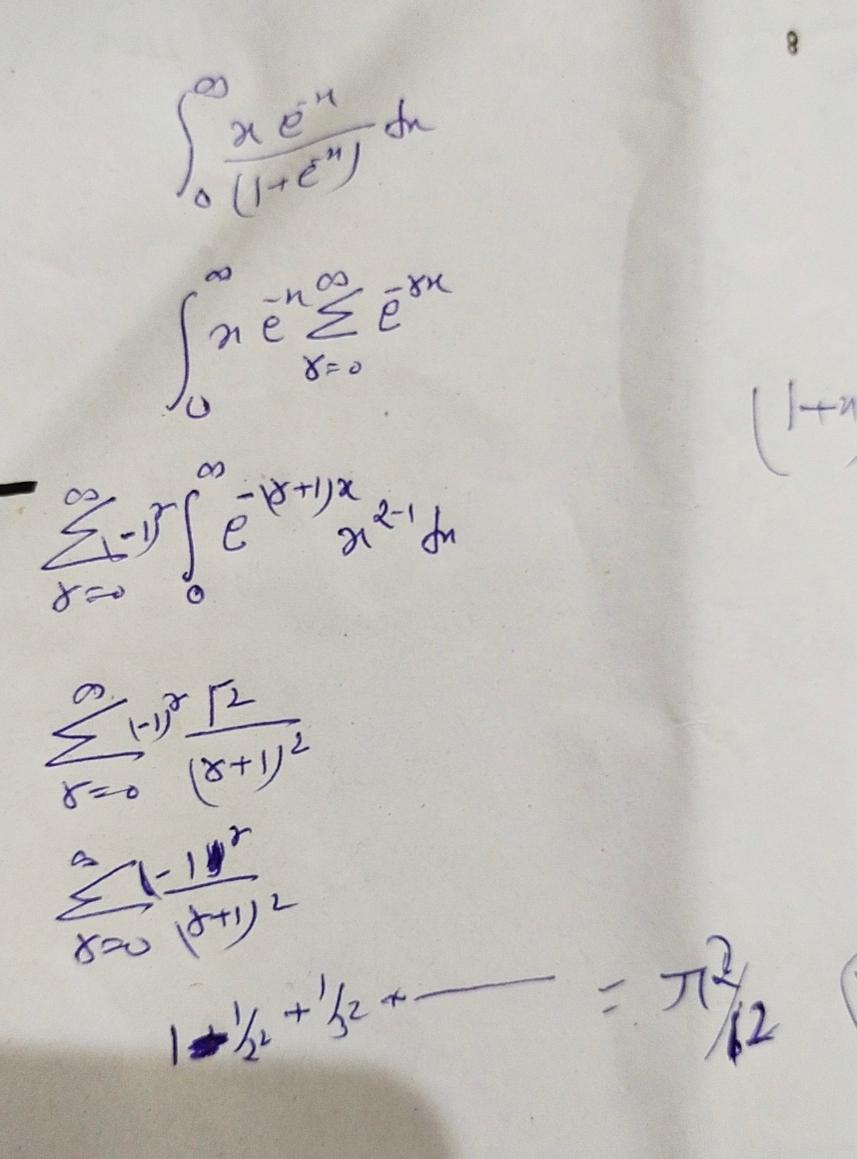 8
∫₀^∞ x e^-x / (1+e^-x) dx
∫₀^∞ x e^-x ∑_{r=0}^∞ e^-rx
(1+x
∑_{r=0}^∞ (-1)^r ∫₀^∞ e^-(r+1)x x^2-1 dx
∑_{r=0}^∞ (-1)^r Γ2 / (r+1)^2
∑_{r=0}^∞ (-1)^r / (r+1)^2
1 - 1/2^2 + 1/3^2 + —— = π^2/12